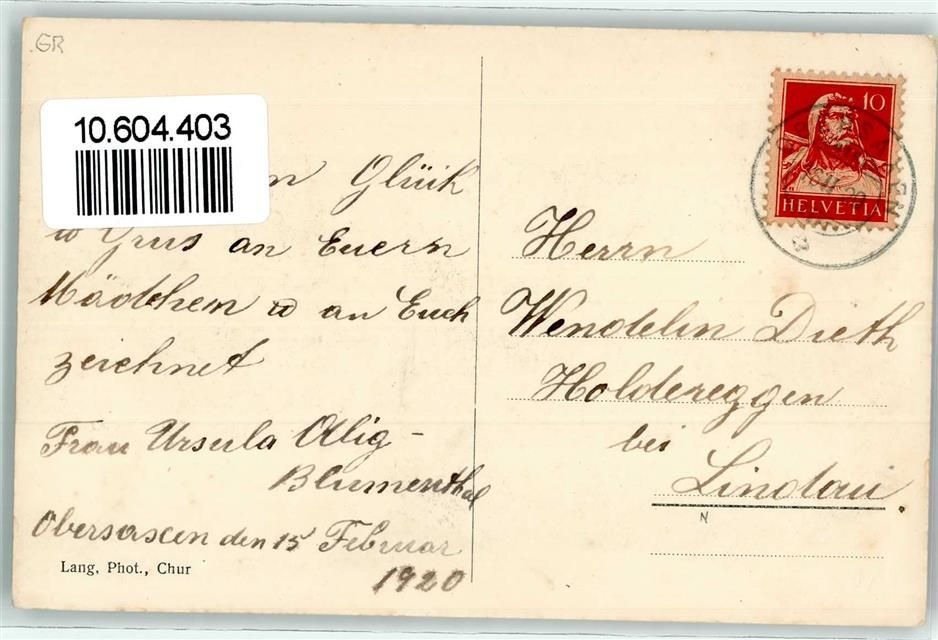 GR
10.604.403
n Glück
u Grus an Euern
Mädchem u an Euch
zeichnet
Frau Ursula Alig-
Blumenthal
Obersaxen den 15 Februar
1920
Lang, Phot., Chur
10
HELVETIA
Herrn
Wendelin Dieth
Holdereggen
bei
Lindau.
N